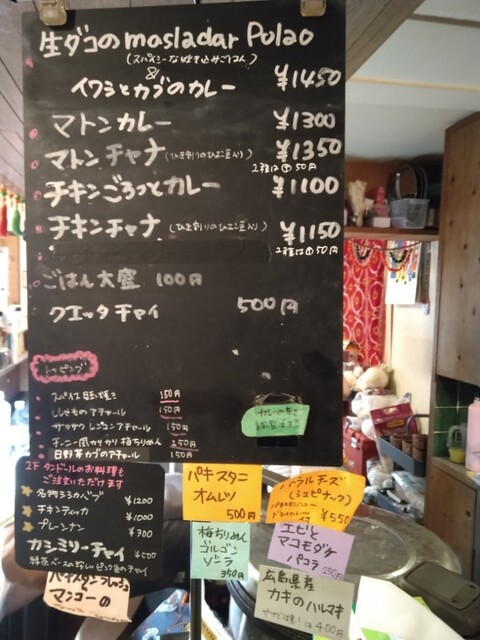 生ダコのmasladar Pulao
(スパイシーな炊き込みごはん)
&
イワシとカブのカレー ¥1450
マトンカレー ¥1300
マトンチャナ (ひき割りのひよこ豆入り) ¥1350
2種は⊕50円
チキンごろっとカレー ¥1100
チキンチャナ (ひき割りのひよこ豆入り) ¥1150
2種は⊕50円
ごはん大盛 100円
クエッタチャイ 500円
トッピング
スパイス目玉焼き 150円
ししとうのアチャール 150円
150円
チーニー風カリカリ梅ちりめん 250円
日野菜カブのアチャール 150円
2F タンドールのお料理も
ご注文いただけます
名物シシカバブ ¥1200
チキンティッカ ¥1000
プレーンナン ¥300
カシミリーチャイ ¥500
緑茶ベースのめずらしいピンク色のチャイ
パキスタンフレッシュ
マンゴーの
パキスタニ
オムレツ
500円
梅ちりめん
ゴルゴン
ゾーラ
350円
パラルチーズ
(シュピナック)
¥550
エビと
マコモダケ
パコラ 250円
広島県産
カキのハルマキ
400円